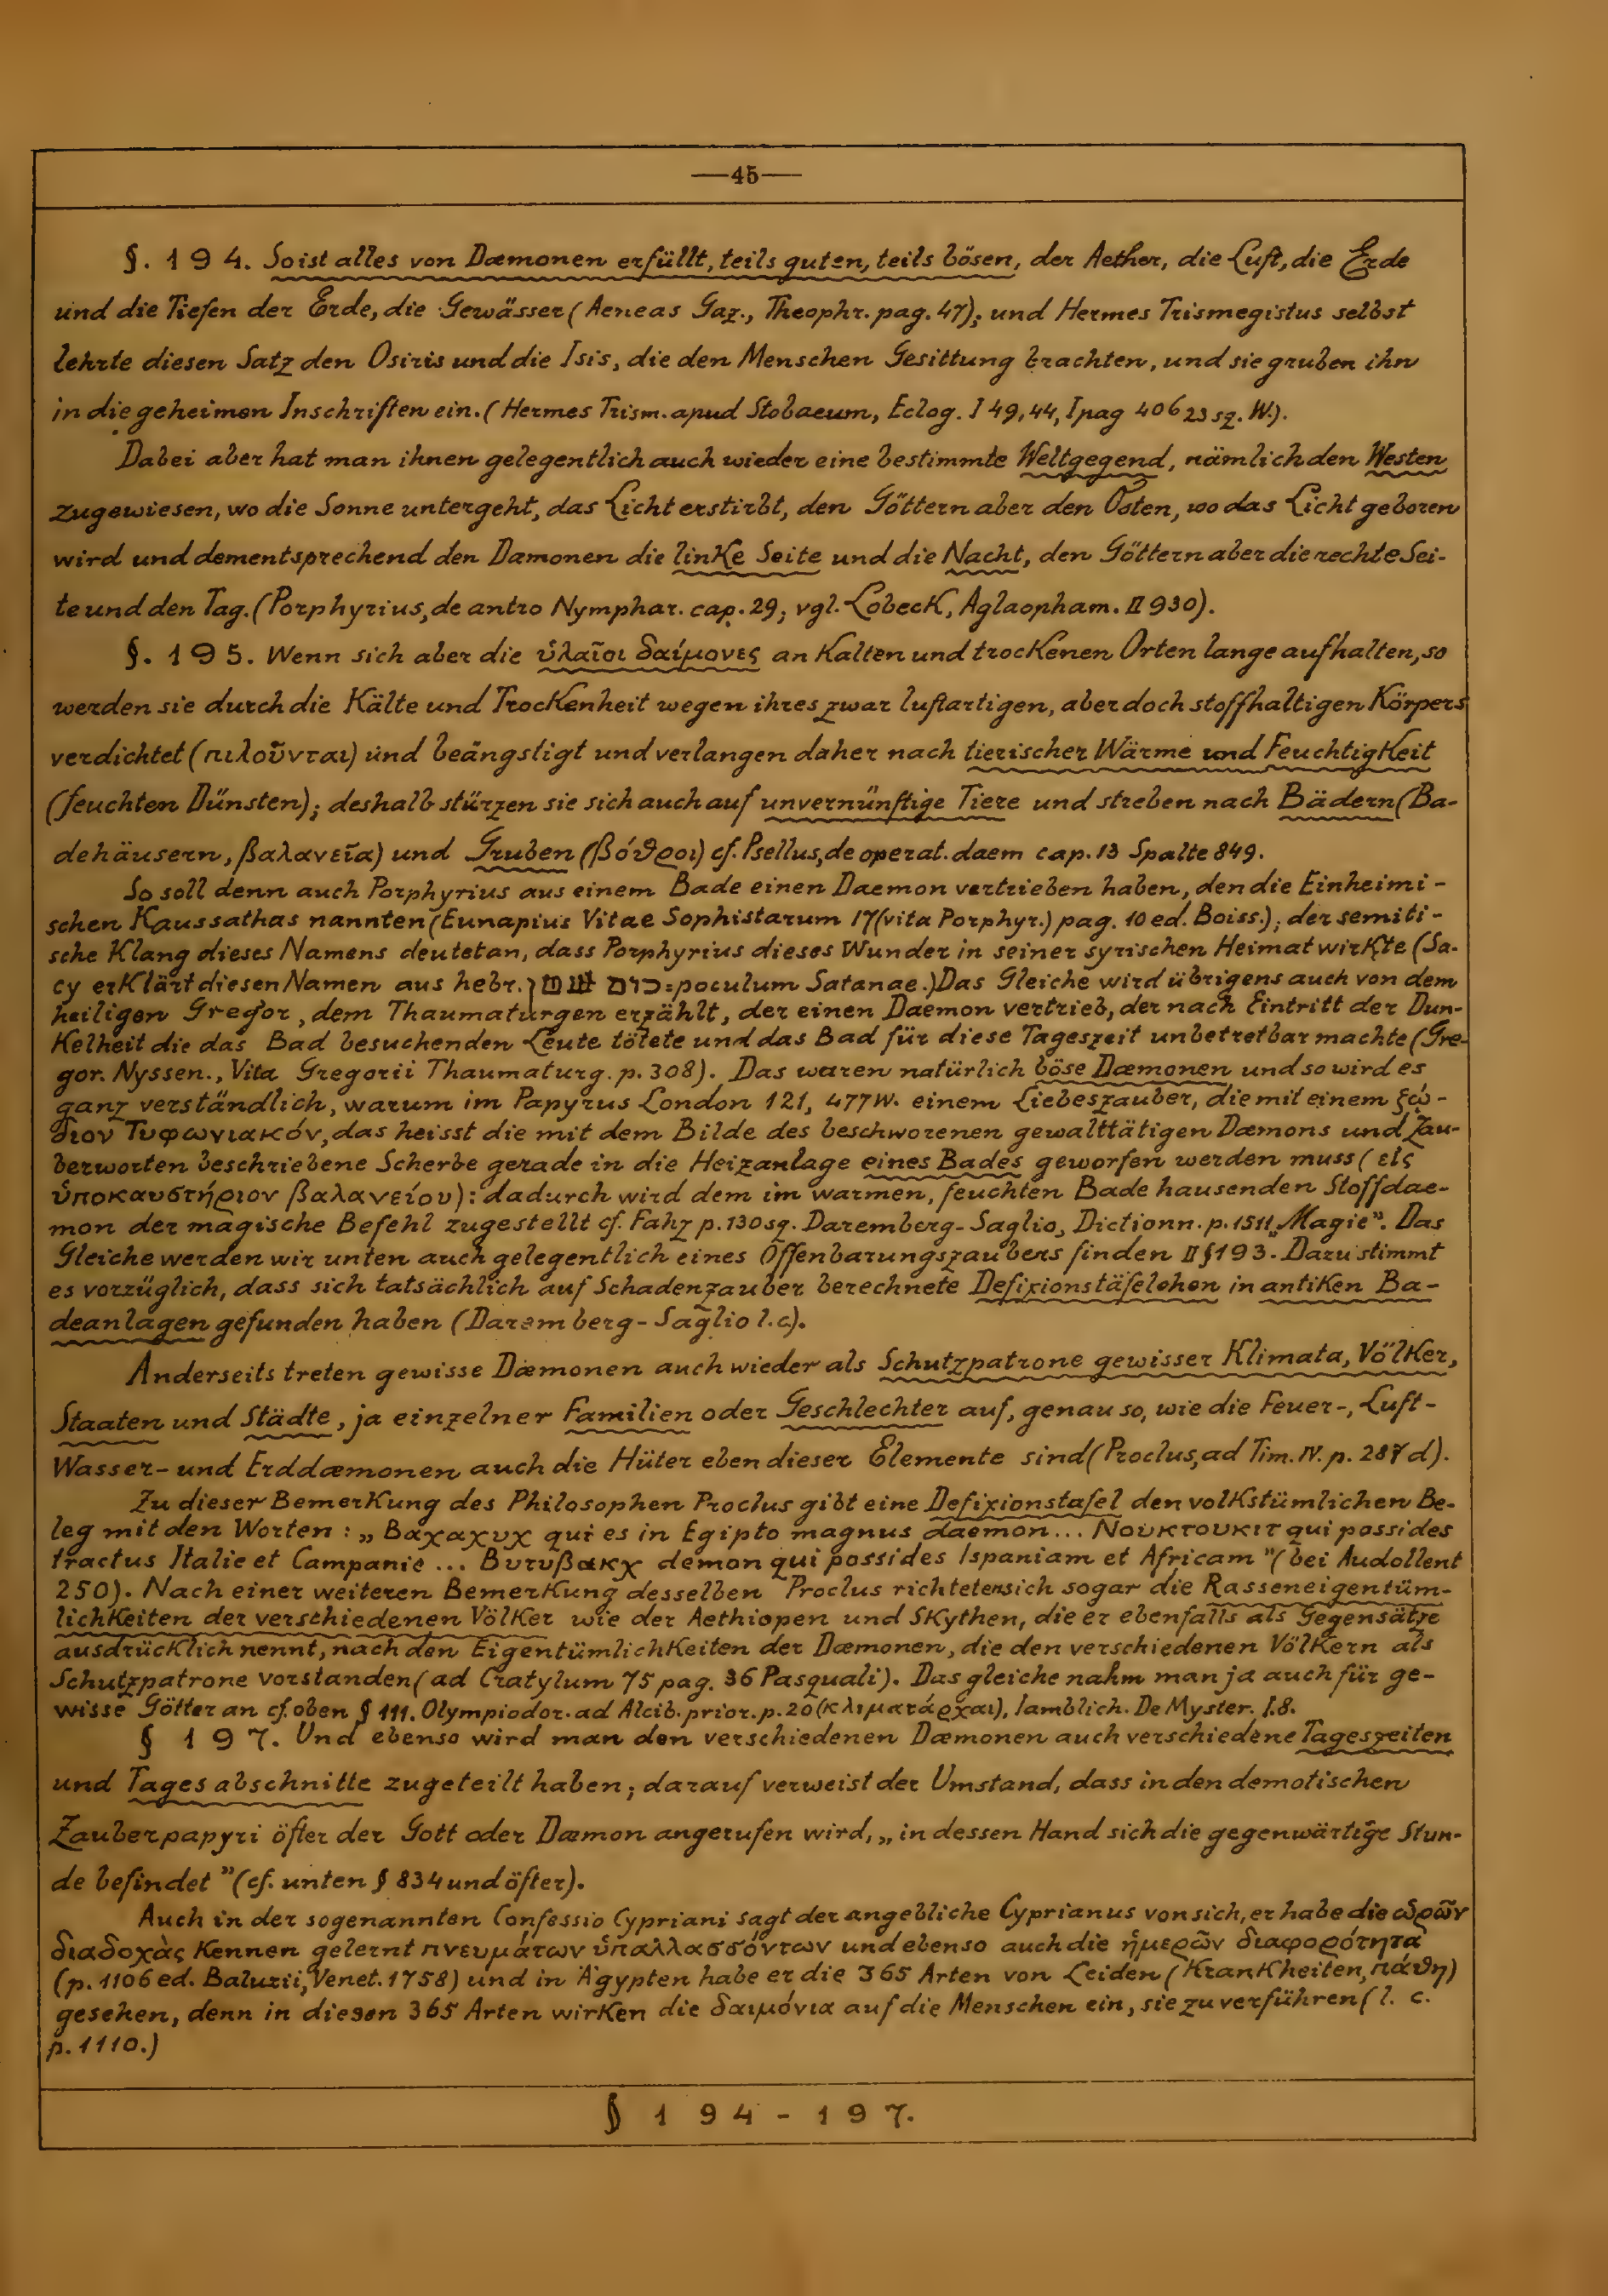 —45—
§. 194. So ist alles von Dæmonen erfüllt, teils guten, teils bösen, der Aether, die Luft, die Erde
und die Tiefen der Erde, die Gewässer (Aeneas Gaz., Theophr. pag. 47); und Hermes Trismegistus selbst
lehrte diesen Satz den Osiris und die Isis, die den Menschen Gesittung brachten, und sie gruben ihn
in die geheimen Inschriften ein. (Hermes Trism. apud Stobaeum, Eclog. I 49, 44, I pag 406 23 sq. W.).
Dabei aber hat man ihnen gelegentlich auch wieder eine bestimmte Weltgegend, nämlich den Westen
zugewiesen, wo die Sonne untergeht, das Licht erstirbt, den Göttern aber den Osten, wo das Licht geboren
wird und dementsprechend den Damonen die linke Seite und die Nacht, den Göttern aber die rechte Sei-
te und den Tag. (Porphyrius, de antro Nymphar. cap. 29; vgl. Lobeck, Aglaopham. II 930).
§. 195. Wenn sich aber die ὑλαῖοι δαίμονες an kalten und trockenen Orten lange aufhalten, so
werden sie durch die Kälte und Trockenheit wegen ihres zwar luftartigen, aber doch stoffhaltigen Körpers
verdichtet (πιλοῦνται) und beängstigt und verlangen daher nach tierischer Wärme und Feuchtigkeit
(feuchten Dünsten); deshalb stürzen sie sich auch auf unvernünftige Tiere und streben nach Bädern (Ba-
dehäusern, βαλανεῖα) und Gruben (βόθροι) cf. Psellus, de operat. daem cap. 13 Spalte 849.
So soll denn auch Porphyrius aus einem Bade einen Daemon vertrieben haben, den die Einheimi-
schen Kaussathas nannten (Eunapius Vitae Sophistarum 17 (vita Porphyr.) pag. 10 ed. Boiss.); der semiti-
sche Klang dieses Namens deutet an, dass Porphyrius dieses Wunder in seiner syrischen Heimat wirkte (Sa-
cy erklärt diesen Namen aus hebr. כוס = poculum Satanae.) Das Gleiche wird übrigens auch von dem
heiligen Gregor, dem Thaumaturgen erzählt, der einen Daemon vertrieb, der nach Eintritt der Dun-
kelheit die das Bad besuchenden Leute tötete und das Bad für diese Tageszeit unbetretbar machte (Gre-
gor. Nyssen., Vita Gregorii Thaumaturg. p. 308). Das waren natürlich böse Dæmonen und so wird es
ganz verständlich, warum im Papyrus London 121, 477 W. einem Liebeszauber, die mit einem ζῴ-
διον Τυφωνιακόν, das heisst die mit dem Bilde des beschworenen gewalttätigen Dæmons und Zau-
berworten beschriebene Scherbe gerade in die Heizanlage eines Bades geworfen werden muss (εἰς
ὑποκαυστήριον βαλανείου): dadurch wird dem im warmen, feuchten Bade hausenden Stoffdae-
mon der magische Befehl zugestellt cf. Fahz p. 130 sq. Daremberg-Saglio, Dictionn. p. 1511 „Magie”. Das
Gleiche werden wir unten auch gelegentlich eines Offenbarungszaubers finden II § 193. Dazu stimmt
es vorzüglich, dass sich tatsächlich auf Schadenzauber berechnete Defixionstäfelchen in antiken Ba-
deanlagen gefunden haben (Daremberg-Saglio l.c.).
Anderseits treten gewisse Dæmonen auch wieder als Schutzpatrone gewisser Klimata, Völker,
Staaten und Städte, ja einzelner Familien oder Geschlechter auf, genau so, wie die Feuer-, Luft-
Wasser- und Erddæmonen auch die Hüter eben dieser Elemente sind (Proclus, ad Tim. IV. p. 287 d).
Zu dieser Bemerkung des Philosophen Proclus gibt eine Defixionstafel den volkstümlichen Be-
leg mit den Worten: „Βαχαχυχ qui es in Egipto magnus daemon... Νουκτουκιτ qui possides
tractus Italie et Campanie ... Βυτυβακχ demon qui possides Ispaniam et Africam” (bei Audollent
250). Nach einer weiteren Bemerkung desselben Proclus richteten sich sogar die Rasseneigentüm-
lichkeiten der verschiedenen Völker wie der Aethiopen und Skythen, die er ebenfalls als Gegensätze
ausdrücklich nennt, nach den Eigentümlichkeiten der Dæmonen, die den verschiedenen Völkern als
Schutzpatrone vorstanden (ad Cratylum 75 pag. 36 Pasquali). Das gleiche nahm man ja auch für ge-
wisse Götter an cf. oben § 111. Olympiodor. ad Alcib. prior. p. 20 (κλιματάρχαι), Iamblich. De Myster. I.8.
§ 197. Und ebenso wird man den verschiedenen Dæmonen auch verschiedene Tageszeiten
und Tages abschnitte zugeteilt haben; darauf verweist der Umstand, dass in den demotischen
Zauberpapyri öfter der Gott oder Dæmon angerufen wird, „in dessen Hand sich die gegenwärtige Stun-
de befindet” (cf. unten § 834 und öfter).
Auch in der sogenannten Confessio Cypriani sagt der angebliche Cyprianus von sich, er habe die ὡρῶν
διαδοχὰς kennen gelernt πνευμάτων ὑπαλλασσόντων und ebenso auch die ἡμερῶν διαφορότητα
(p. 1106 ed. Baluzii, Venet. 1758) und in Ägypten habe er die 365 Arten von Leiden (Krankheiten, πάθη)
gesehen, denn in diesen 365 Arten wirken die δαιμόνια auf die Menschen ein, sie zu verführen (l. c.
p. 1110.)
§ 194-197.